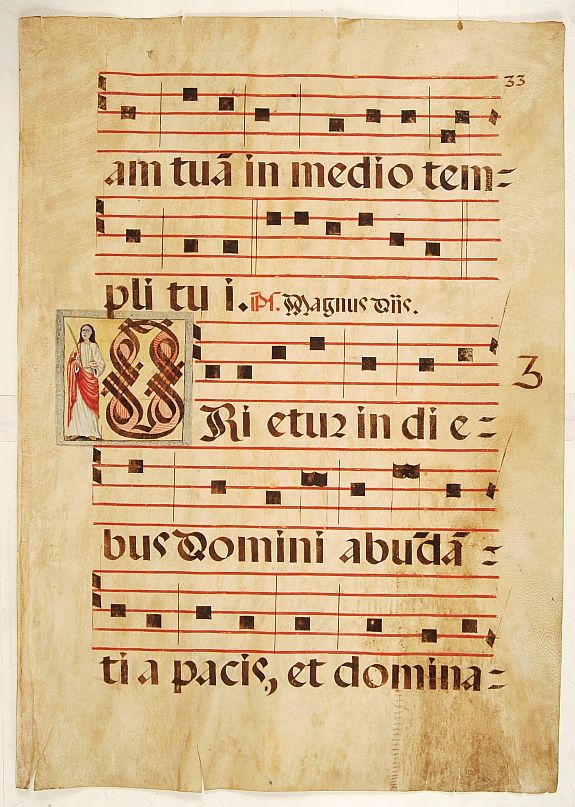 33
am tuā in medio tem=
pli tu i. ps. Magnus Dñs.
3
ORi etur in di e=
bus Domini abūdā=
ti a pacis, et domina=